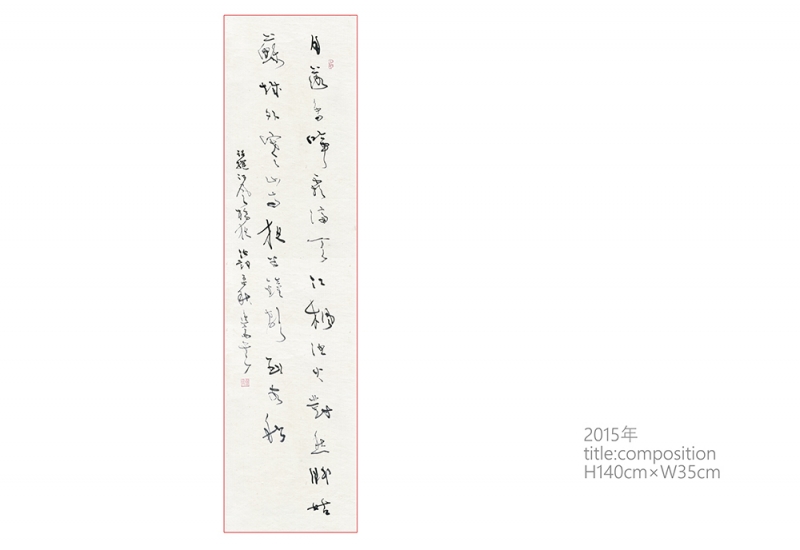 月落烏啼霜滿天江楓漁火對愁眠姑
蘇城外寒山寺夜半鐘聲到客船
張繼
2015年
title:composition
H140cm×W35cm